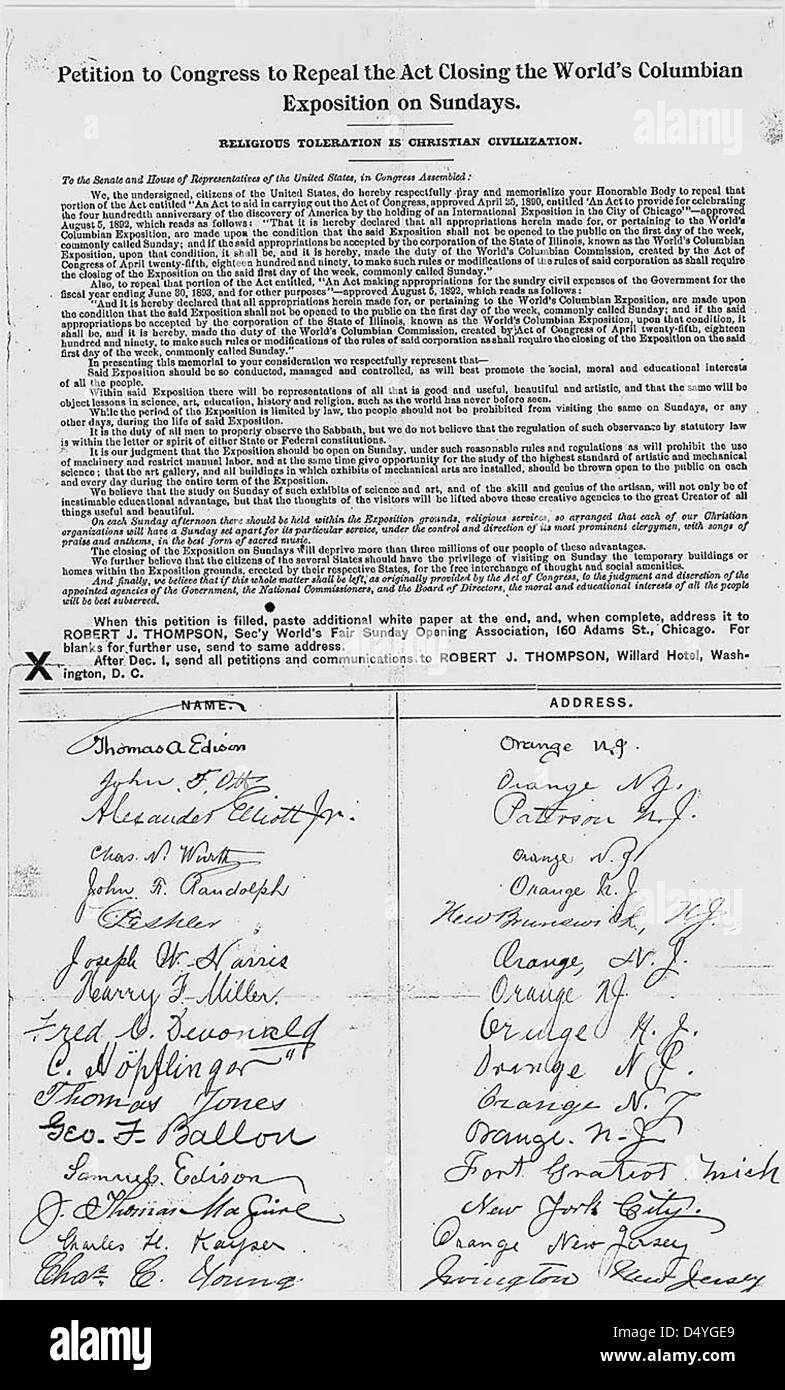 Petition to Congress to Repeal the Act Closing the World's Columbian
Exposition on Sundays.
RELIGIOUS TOLERATION IS CHRISTIAN CIVILIZATION.
To the Senate and House of Representatives of the United States, in Congress Assembled:
We, the undersigned, citizens of the United States, do hereby respectfully pray and memorialize your Honorable Body to repeal that
portion of the Act entitled "An Act to aid in carrying out the Act of Congress, approved April 25, 1890, entitled 'An Act to provide for celebrating
the four hundredth anniversary of the discovery of America by the holding of an International Exposition in the City of Chicago'"—approved
August 5, 1892, which reads as follows: "That it is hereby declared that all appropriations herein made for, or pertaining to the World's
Columbian Exposition, are made upon the condition that the said Exposition shall not be opened to the public on the first day of the week,
commonly called Sunday; and if the said appropriations be accepted by the corporation of the State of Illinois, known as the World's Columbian
Exposition, upon that condition, it shall be, and it is hereby, made the duty of the World's Columbian Commission, created by the Act of
Congress of April twenty-fifth, eighteen hundred and ninety, to make such rules or modifications of the rules of said corporation as shall require
the closing of the Exposition on the said first day of the week, commonly called Sunday."
Also, to repeal that portion of the Act entitled, "An Act making appropriations for the sundry civil expenses of the Government for the
fiscal year ending June 30, 1893, and for other purposes"—approved August 5, 1892, which reads as follows:
"And it is hereby declared that all appropriations herein made for, or pertaining to the World's Columbian Exposition, are made upon
the condition that the said Exposition shall not be opened to the public on the first day of the week, commonly called Sunday; and if the said
appropriations be accepted by the corporation of the State of Illinois, known as the World's Columbian Exposition, upon that condition, it
shall be, and it is hereby, made the duty of the World's Columbian Commission, created by Act of Congress of April twenty-fifth, eighteen
hundred and ninety, to make such rules or modifications of the rules of said corporation as shall require the closing of the Exposition on the said
first day of the week, commonly called Sunday."
In presenting this memorial to your consideration we respectfully represent that—
Said Exposition should be so conducted, managed and controlled, as will best promote the social, moral and educational interests
of all the people.
Within said Exposition there will be representations of all that is good and useful, beautiful and artistic, and that the same will be
object lessons in science, art, education, history and religion, such as the world has never before seen.
While the period of the Exposition is limited by law, the people should not be prohibited from visiting the same on Sundays, or any
other days, during the life of said Exposition.
It is the duty of all men to properly observe the Sabbath, but we do not believe that the regulation of such observance by statutory law
is within the letter or spirit of either State or Federal constitutions.
It is our judgment that the Exposition should be open on Sunday, under such reasonable rules and regulations as will prohibit the use
of machinery and restrict manual labor, and at the same time give opportunity for the study of the highest standard of artistic and mechanical
science; that the art gallery, and all buildings in which exhibits of mechanical arts are installed, should be thrown open to the public on each
and every day during the entire term of the Exposition.
We believe that the study on Sunday of such exhibits of science and art, and of the skill and genius of the artisan, will not only be of
inestimable educational advantage, but that the thoughts of the visitors will be lifted above these creative agencies to the great Creator of all
things useful and beautiful.
On each Sunday afternoon there should be held within the Exposition grounds, religious services, so arranged that each of our Christian
organizations will have a Sunday set apart for its particular service, under the control and direction of its most prominent clergymen, with songs of
praise and anthems, in the best form of sacred music.
The closing of the Exposition on Sundays will deprive more than three millions of our people of these advantages.
We further believe that the citizens of the several States should have the privilege of visiting on Sunday the temporary buildings or
homes within the Exposition grounds, erected by their respective States, for the free interchange of thought and social amenities.
And finally, we believe that if this whole matter shall be left, as originally provided by the Act of Congress, to the judgment and discretion of the
appointed agencies of the Government, the National Commissioners, and the Board of Directors, the moral and educational interests of all the people
will be best subserved.
When this petition is filled, paste additional white paper at the end, and, when complete, address it to
ROBERT J. THOMPSON, Sec'y World's Fair Sunday Opening Association, 160 Adams St., Chicago. For
blanks for further use, send to same address.
X After Dec. 1, send all petitions and communications to ROBERT J. THOMPSON, Willard Hotel, Wash-
ington, D. C.
NAME. ADDRESS.
Thomas A Edison Orange N.J.
John F. Ott Orange N.J.
Alexander Elliott Jr. Paterson N.J.
Chas. N. Wurth Orange N.J.
John F. Randolph Orange N.J
New Brunswick, N.J.
Joseph W. Harris Orange, N.J.
Harry F. Miller. Orange NJ.
Fred C. Devonald Orange N.J.
C. Nöpflinger Orange N.J.
Thomas Jones Orange N.J
Geo. F. Ballou Orange. N.J
Samuel Edison Fort Gratiot Mich
J. Thomas Maguire New York City.
Charles H. Kayser. Orange New Jersey
Chas. C. Young Irvington New Jersey
alamy
Image ID: D4YGE9
www.alamy.com